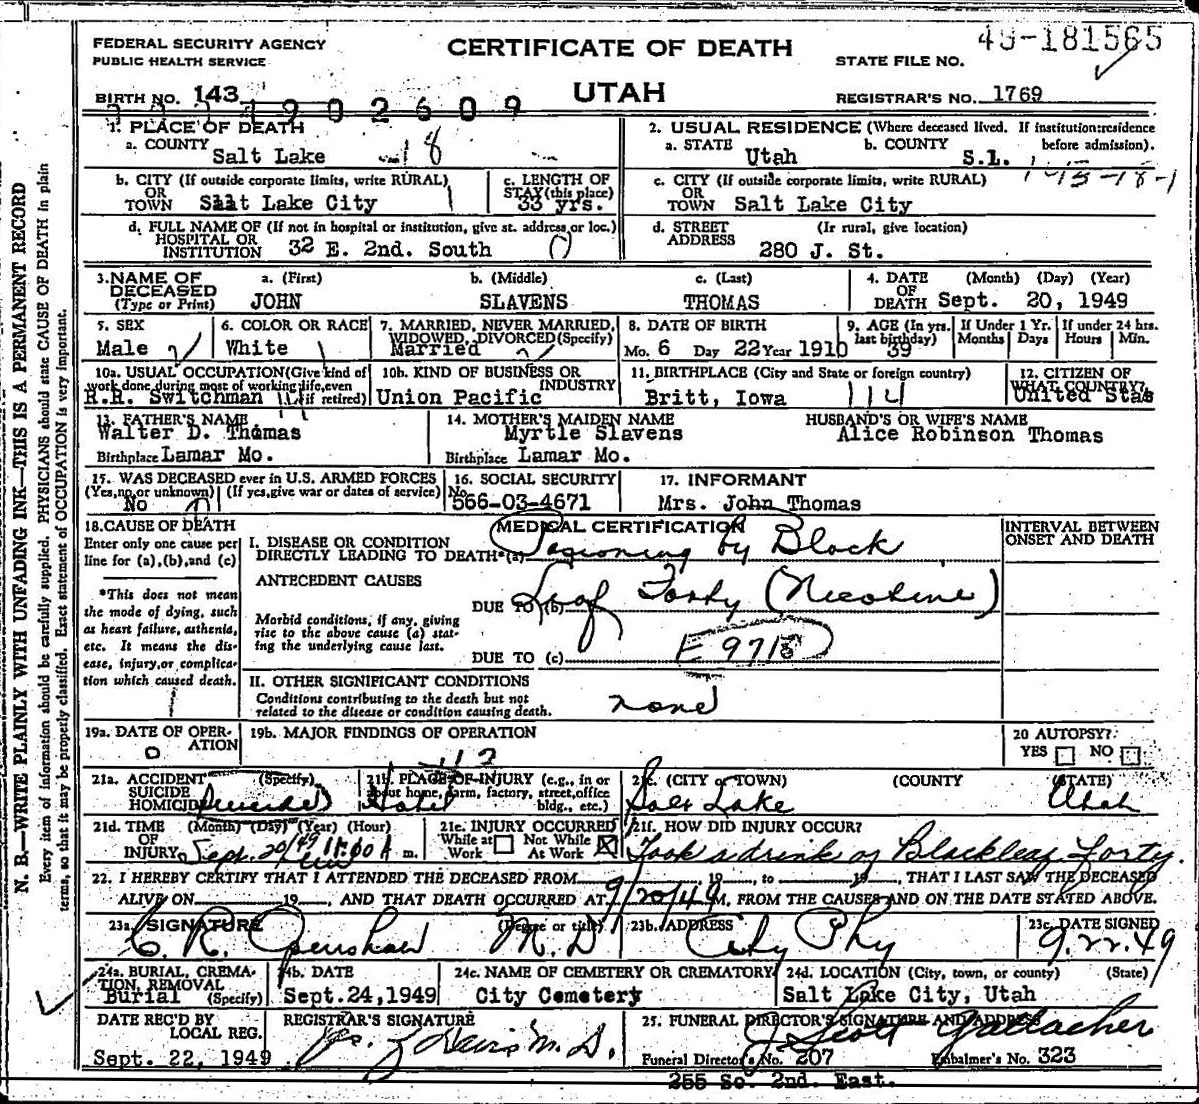 49-181565
FEDERAL SECURITY AGENCY
PUBLIC HEALTH SERVICE
CERTIFICATE OF DEATH
UTAH
STATE FILE NO.
BIRTH NO. 143
1902609
REGISTRAR'S NO. 1769
1. PLACE OF DEATH
a. COUNTY
Salt Lake 18
2. USUAL RESIDENCE (Where deceased lived. If institution: residence before admission).
a. STATE Utah b. COUNTY S.L.
b. CITY (If outside corporate limits, write RURAL)
OR
TOWN Salt Lake City
c. LENGTH OF
STAY (this place)
33 yrs.
c. CITY (If outside corporate limits, write RURAL)
OR
TOWN Salt Lake City
d. FULL NAME OF (If not in hospital or institution, give st. address or loc.)
HOSPITAL OR
INSTITUTION 32 E. 2nd. South
d. STREET (If rural, give location)
ADDRESS 280 J. St.
3. NAME OF
DECEASED
(Type or Print)
a. (First)
JOHN
b. (Middle)
SLAVENS
c. (Last)
THOMAS
4. DATE (Month) (Day) (Year)
OF
DEATH Sept. 20, 1949
5. SEX
Male
6. COLOR OR RACE
White
7. MARRIED, NEVER MARRIED,
WIDOWED, DIVORCED (Specify)
Married
8. DATE OF BIRTH
Mo. 6 Day 22 Year 1910
9. AGE (In yrs.
last birthday)
39
If Under 1 Yr.
Months Days
If under 24 hrs.
Hours Min.
10a. USUAL OCCUPATION (Give kind of
work done during most of working life, even
if retired)
R.R. Switchman
10b. KIND OF BUSINESS OR
INDUSTRY
Union Pacific
11. BIRTHPLACE (City and State or foreign country)
Britt, Iowa 114
12. CITIZEN OF
WHAT COUNTRY?
United Stas
13. FATHER'S NAME
Walter D. Thomas
Birthplace Lamar Mo.
14. MOTHER'S MAIDEN NAME
Myrtle Slavens
Birthplace Lamar Mo.
HUSBAND'S OR WIFE'S NAME
Alice Robinson Thomas
15. WAS DECEASED ever in U.S. ARMED FORCES
(Yes, no, or unknown) (If yes, give war or dates of service)
No
16. SOCIAL SECURITY
No.
566-03-4671
17. INFORMANT
Mrs. John Thomas
18. CAUSE OF DEATH
Enter only one cause per
line for (a), (b), and (c)
*This does not mean
the mode of dying, such
as heart failure, asthenia,
etc. It means the dis-
ease, injury, or complica-
tion which caused death.
MEDICAL CERTIFICATION
I. DISEASE OR CONDITION
DIRECTLY LEADING TO DEATH* (a) Poisoning by Black
ANTECEDENT CAUSES
DUE TO (b) Leaf Forty (Nicotine)
Morbid conditions, if any, giving
rise to the above cause (a) stat-
ing the underlying cause last.
DUE TO (c) E 971
INTERVAL BETWEEN
ONSET AND DEATH
II. OTHER SIGNIFICANT CONDITIONS
Conditions contributing to the death but not
related to the disease or condition causing death.
none
19a. DATE OF OPER-
ATION
0
19b. MAJOR FINDINGS OF OPERATION
20 AUTOPSY?
YES NO
21a. ACCIDENT (Specify)
SUICIDE
HOMICIDE Suicide
21b. PLACE OF INJURY (e.g., in or
about home, farm, factory, street, office
bldg., etc.)
Hotel
21c. (CITY or TOWN) (COUNTY) (STATE)
Salt Lake Utah
21d. TIME (Month) (Day) (Year) (Hour)
OF
INJURY Sept. 20/49 m.
21e. INJURY OCCURRED
While at Work Not While At Work X
21f. HOW DID INJURY OCCUR?
Took a drink of Blackleaf Forty.
22. I HEREBY CERTIFY THAT I ATTENDED THE DECEASED FROM 19 , to 19 , THAT I LAST SAW THE DECEASED
ALIVE ON 19 , AND THAT DEATH OCCURRED AT 9/20/49 M, FROM THE CAUSES AND ON THE DATE STATED ABOVE.
23a. SIGNATURE (Degree or title)
C. R. Openshaw M.D
23b. ADDRESS
City Phy
23c. DATE SIGNED
9.22.49
24a. BURIAL, CREMA-
TION, REMOVAL
Burial (Specify)
24b. DATE
Sept.24,1949
24c. NAME OF CEMETERY OR CREMATORY
City Cemetery
24d. LOCATION (City, town, or county) (State)
Salt Lake City, Utah
DATE REC'D BY
LOCAL REG.
Sept. 22, 1949
REGISTRAR'S SIGNATURE
M.D.
25. FUNERAL DIRECTOR'S SIGNATURE AND ADDRESS
J. Scott Gallacher
Funeral Director's No. 207 Embalmer's No. 323
255 So. 2nd. East.
N. B.—WRITE PLAINLY WITH UNFADING INK—THIS IS A PERMANENT RECORD
Every item of information should be carefully supplied. PHYSICIANS should state CAUSE OF DEATH in plain
terms, so that it may be properly classified. Exact statement of OCCUPATION is very important.